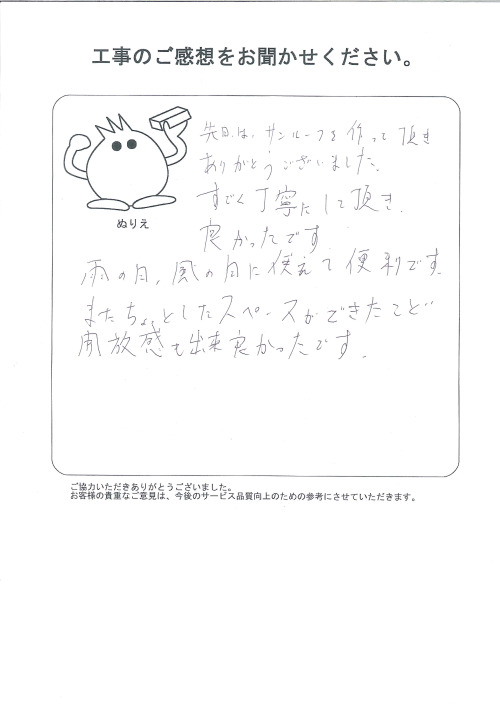 工事のご感想をお聞かせください。
先日は、サンルーフを作って頂き
ありがとうございました。
すごく丁寧にして頂き、
良かったです
ぬりえ
雨の日、風の日に使えて便利です。
またちょっとしたスペースができたことで
開放感も出来良かったです。
ご協力いただきありがとうございました。
お客様の貴重なご意見は、今後のサービス品質向上のための参考にさせていただきます。